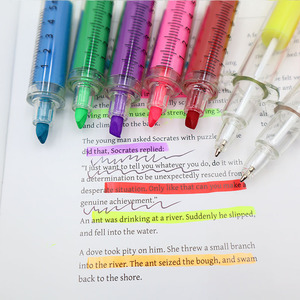 and climb
to the ba
The young man asked Socrates with puzzle
did that, Socrates replied:
"I just want to tell you whatever you do, do it with
a determination to be unexpectedly rescued from
desperate situation. Only like that can you make
genuine achievement."
An ant was drinking at a river, Suddenly he slipped,
and fell into the water.
A dove took pity on him. She threw a small branch
into the river. The ant seized the bough, and swam
back to the shore.